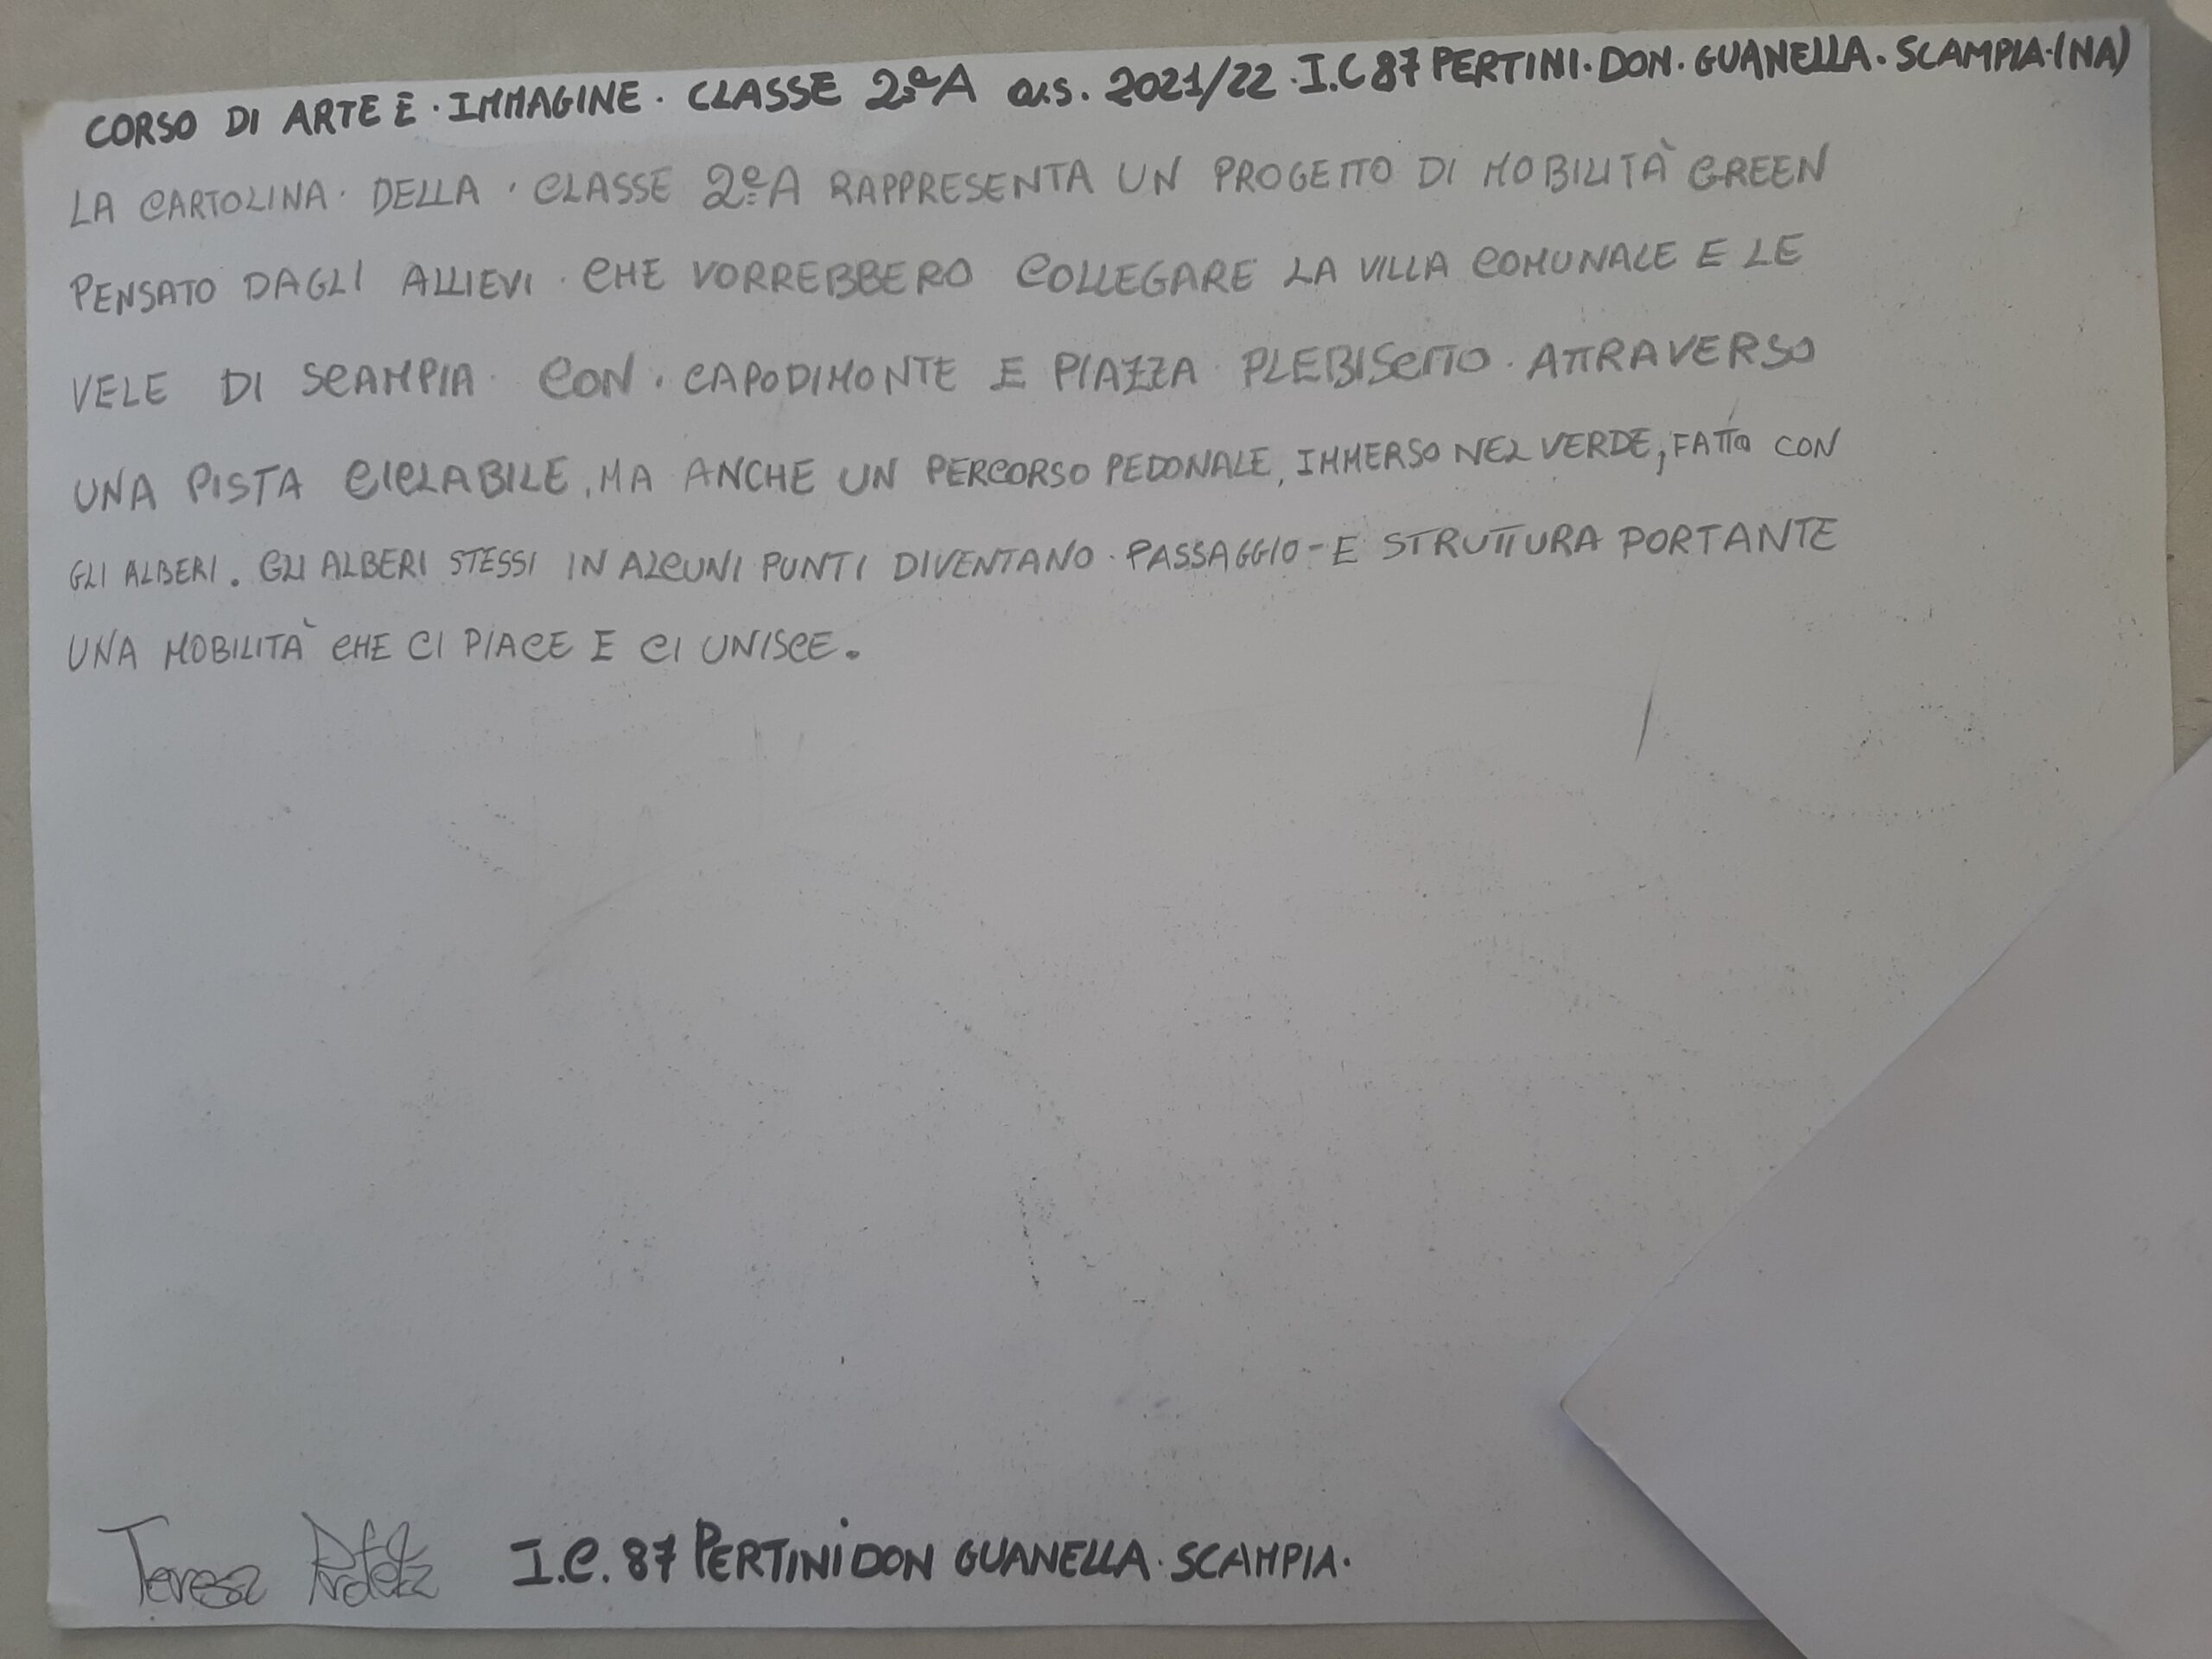 CORSO DI ARTE E · IMMAGINE · CLASSE 2ªA a.s. 2021/22 · I.C 87 PERTINI · DON · GUANELLA · SCAMPIA · (NA)
LA CARTOLINA · DELLA · CLASSE 2ªA RAPPRESENTA UN PROGETTO DI MOBILITÀ GREEN
PENSATO DAGLI ALLIEVI · CHE VORREBBERO COLLEGARE LA VILLA COMUNALE E LE
VELE DI SCAMPIA · CON · CAPODIMONTE E PIAZZA · PLEBISCITO · ATTRAVERSO
UNA PISTA CICLABILE, MA ANCHE UN PERCORSO PEDONALE, IMMERSO NEL VERDE, FATTO CON
GLI ALBERI. GLI ALBERI STESSI IN ALCUNI PUNTI DIVENTANO · PASSAGGIO - E STRUTTURA PORTANTE
UNA MOBILITÀ CHE CI PIACE E CI UNISCE.
Teresa
I.C. 87 PERTINI DON GUANELLA · SCAMPIA ·